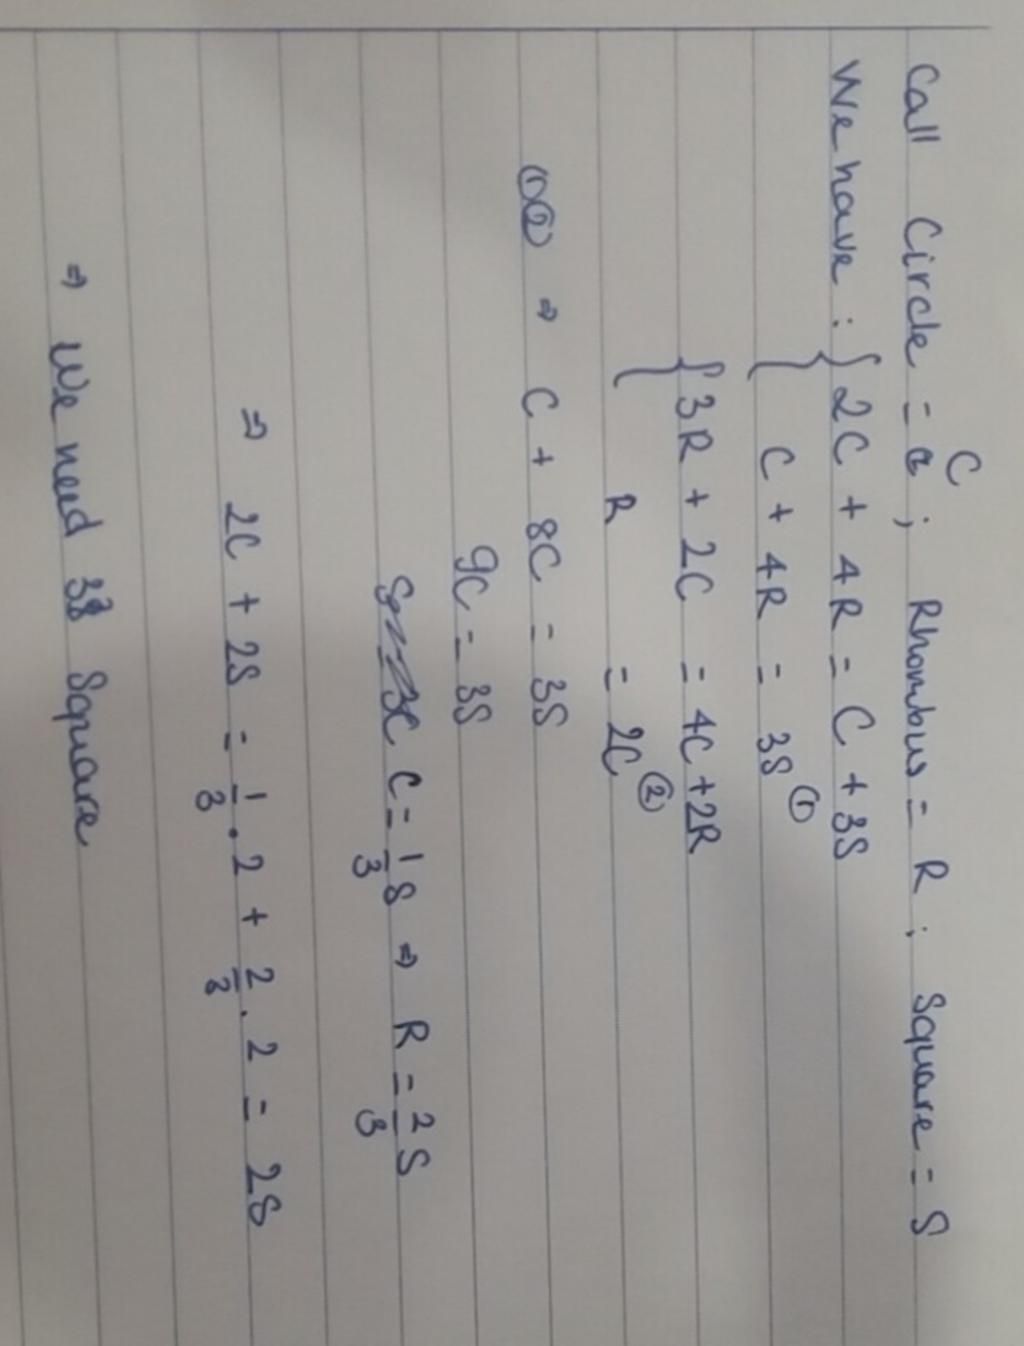 Call Circle = C ; Rhombus = R ; Square = S
We have : { 2C + 4R = C + 3S
{ C + 4R = 3S ①
{ 3R + 2C = 4C + 2R
{ R = 2C ②
①② ⇒ C + 8C = 3S
9C = 3S
C = 1/3 S ⇒ R = 2/3 S
⇒ 2C + 2S = 1/3 . 2 + 2/3 . 2 = 2S
⇒ We need Square